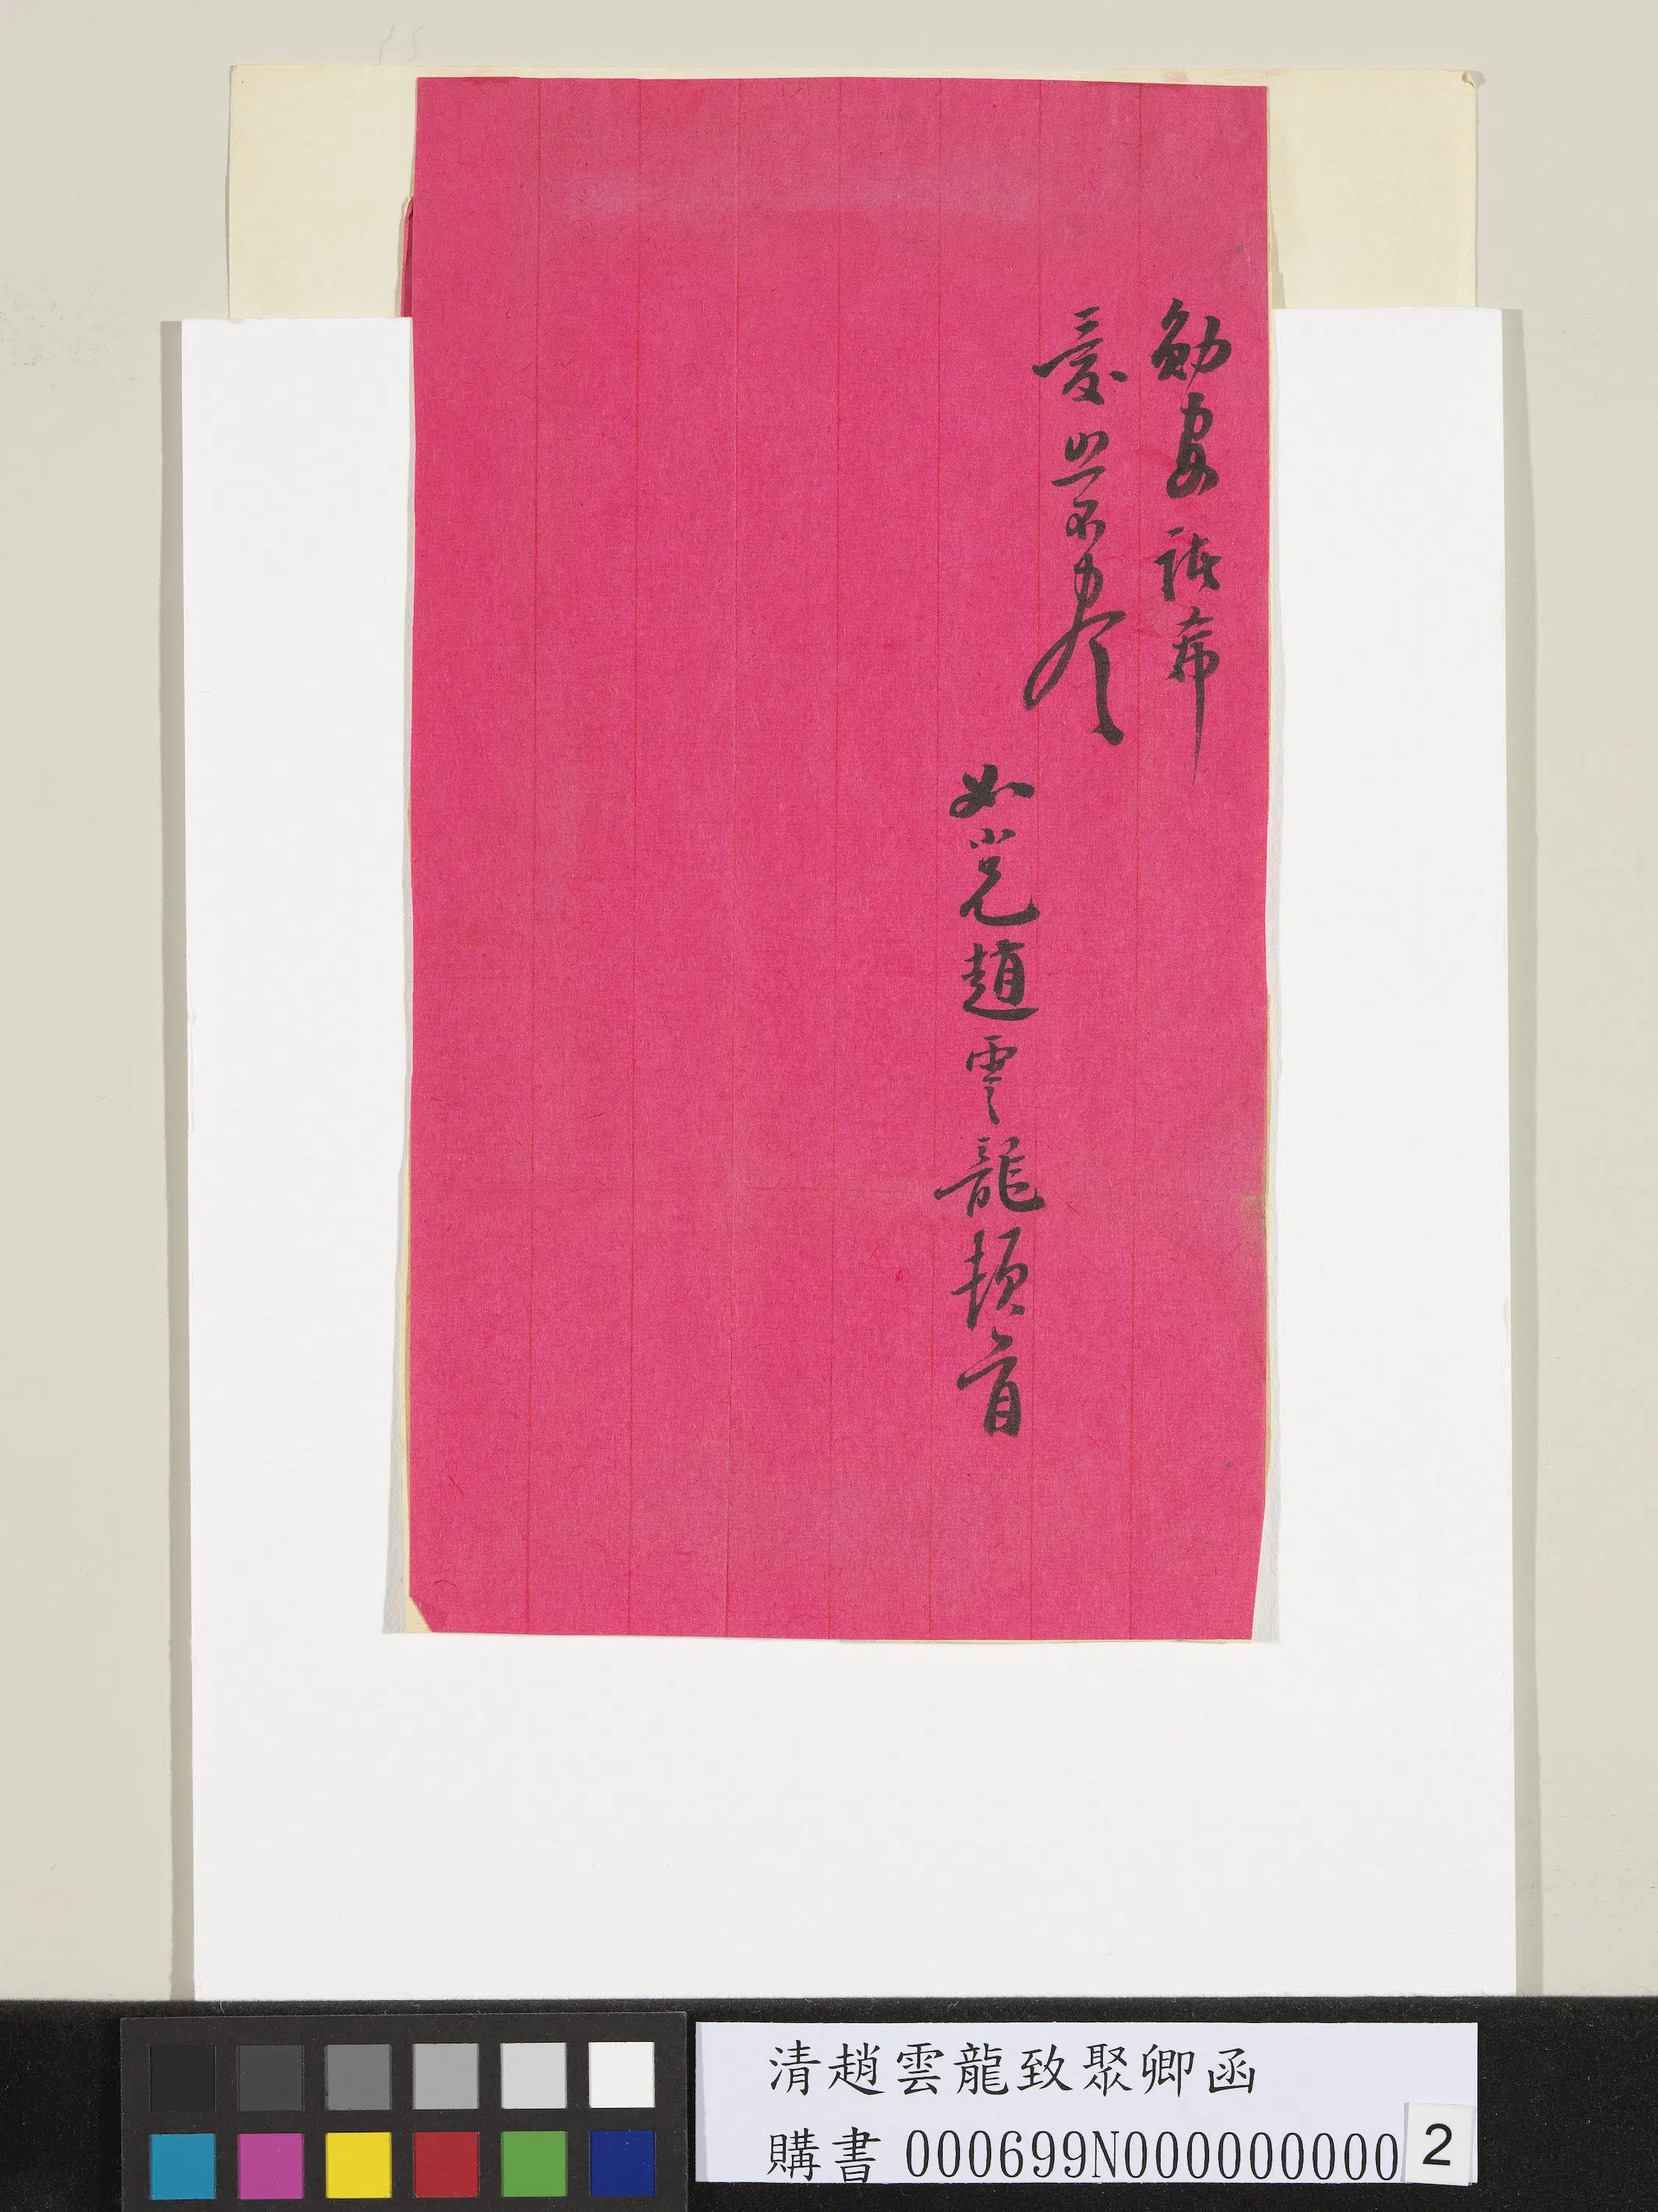 勛安祗希
愛照不盡
如小兄趙雲龍頓首
清趙雲龍致聚卿函
購書 000699N000000000
2